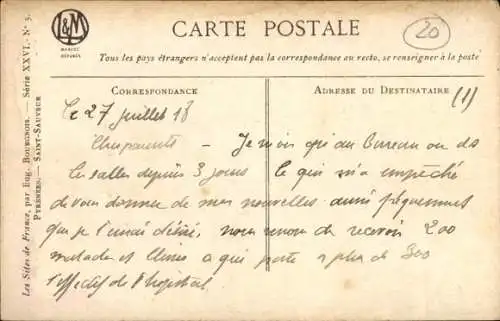 L&M
MARQUE
DÉPOSÉE
CARTE POSTALE
20
Tous les pays étrangers n'acceptent pas la correspondance au recto, se renseigner à la poste
CORRESPONDANCE
ADRESSE DU DESTINATAIRE
(1)
Les Sites de France, par Eug. BOURGEOIS. — Série XXVI. — N° 5.
PYRÉNÉES. — SAINT-SAUVEUR
Le 27 juillet 18
Chers parents — Je suis au bureau ou ds
les salles depuis 3 jours ce qui m'a empêché
de vous donner de mes nouvelles aussi fréquemment
que je l'aurais désiré, nous venons de recevoir 200
malades et ce qui porte à plus de 300
l'effectif de l'hôpital